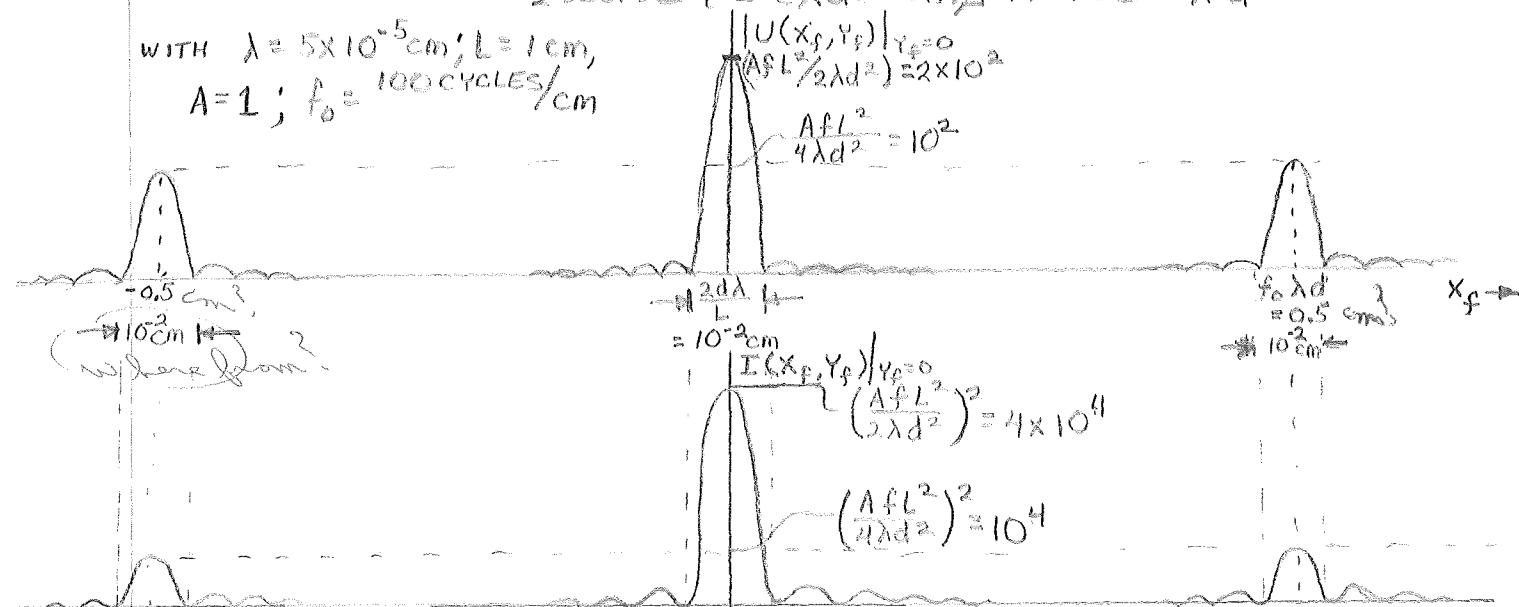 WITH λ = 5×10⁻⁵cm; L = 1 cm,
A=1 ; f₀ = 100 CYCLES/cm
|U(X_f, Y_f)|_{Y_f=0}
(AfL²/2λd²) = 2×10²
AfL²/4λd² = 10²
-0.5 cm?
10⁻² cm
where from?
2dλ/L
= 10⁻² cm
f₀ λ d
= 0.5 cm?
10⁻² cm
X_f →
I(X_f, Y_f)|_{Y_f=0}
(AfL²/2λd²)² = 4×10⁴
(AfL²/4λd²)² = 10⁴